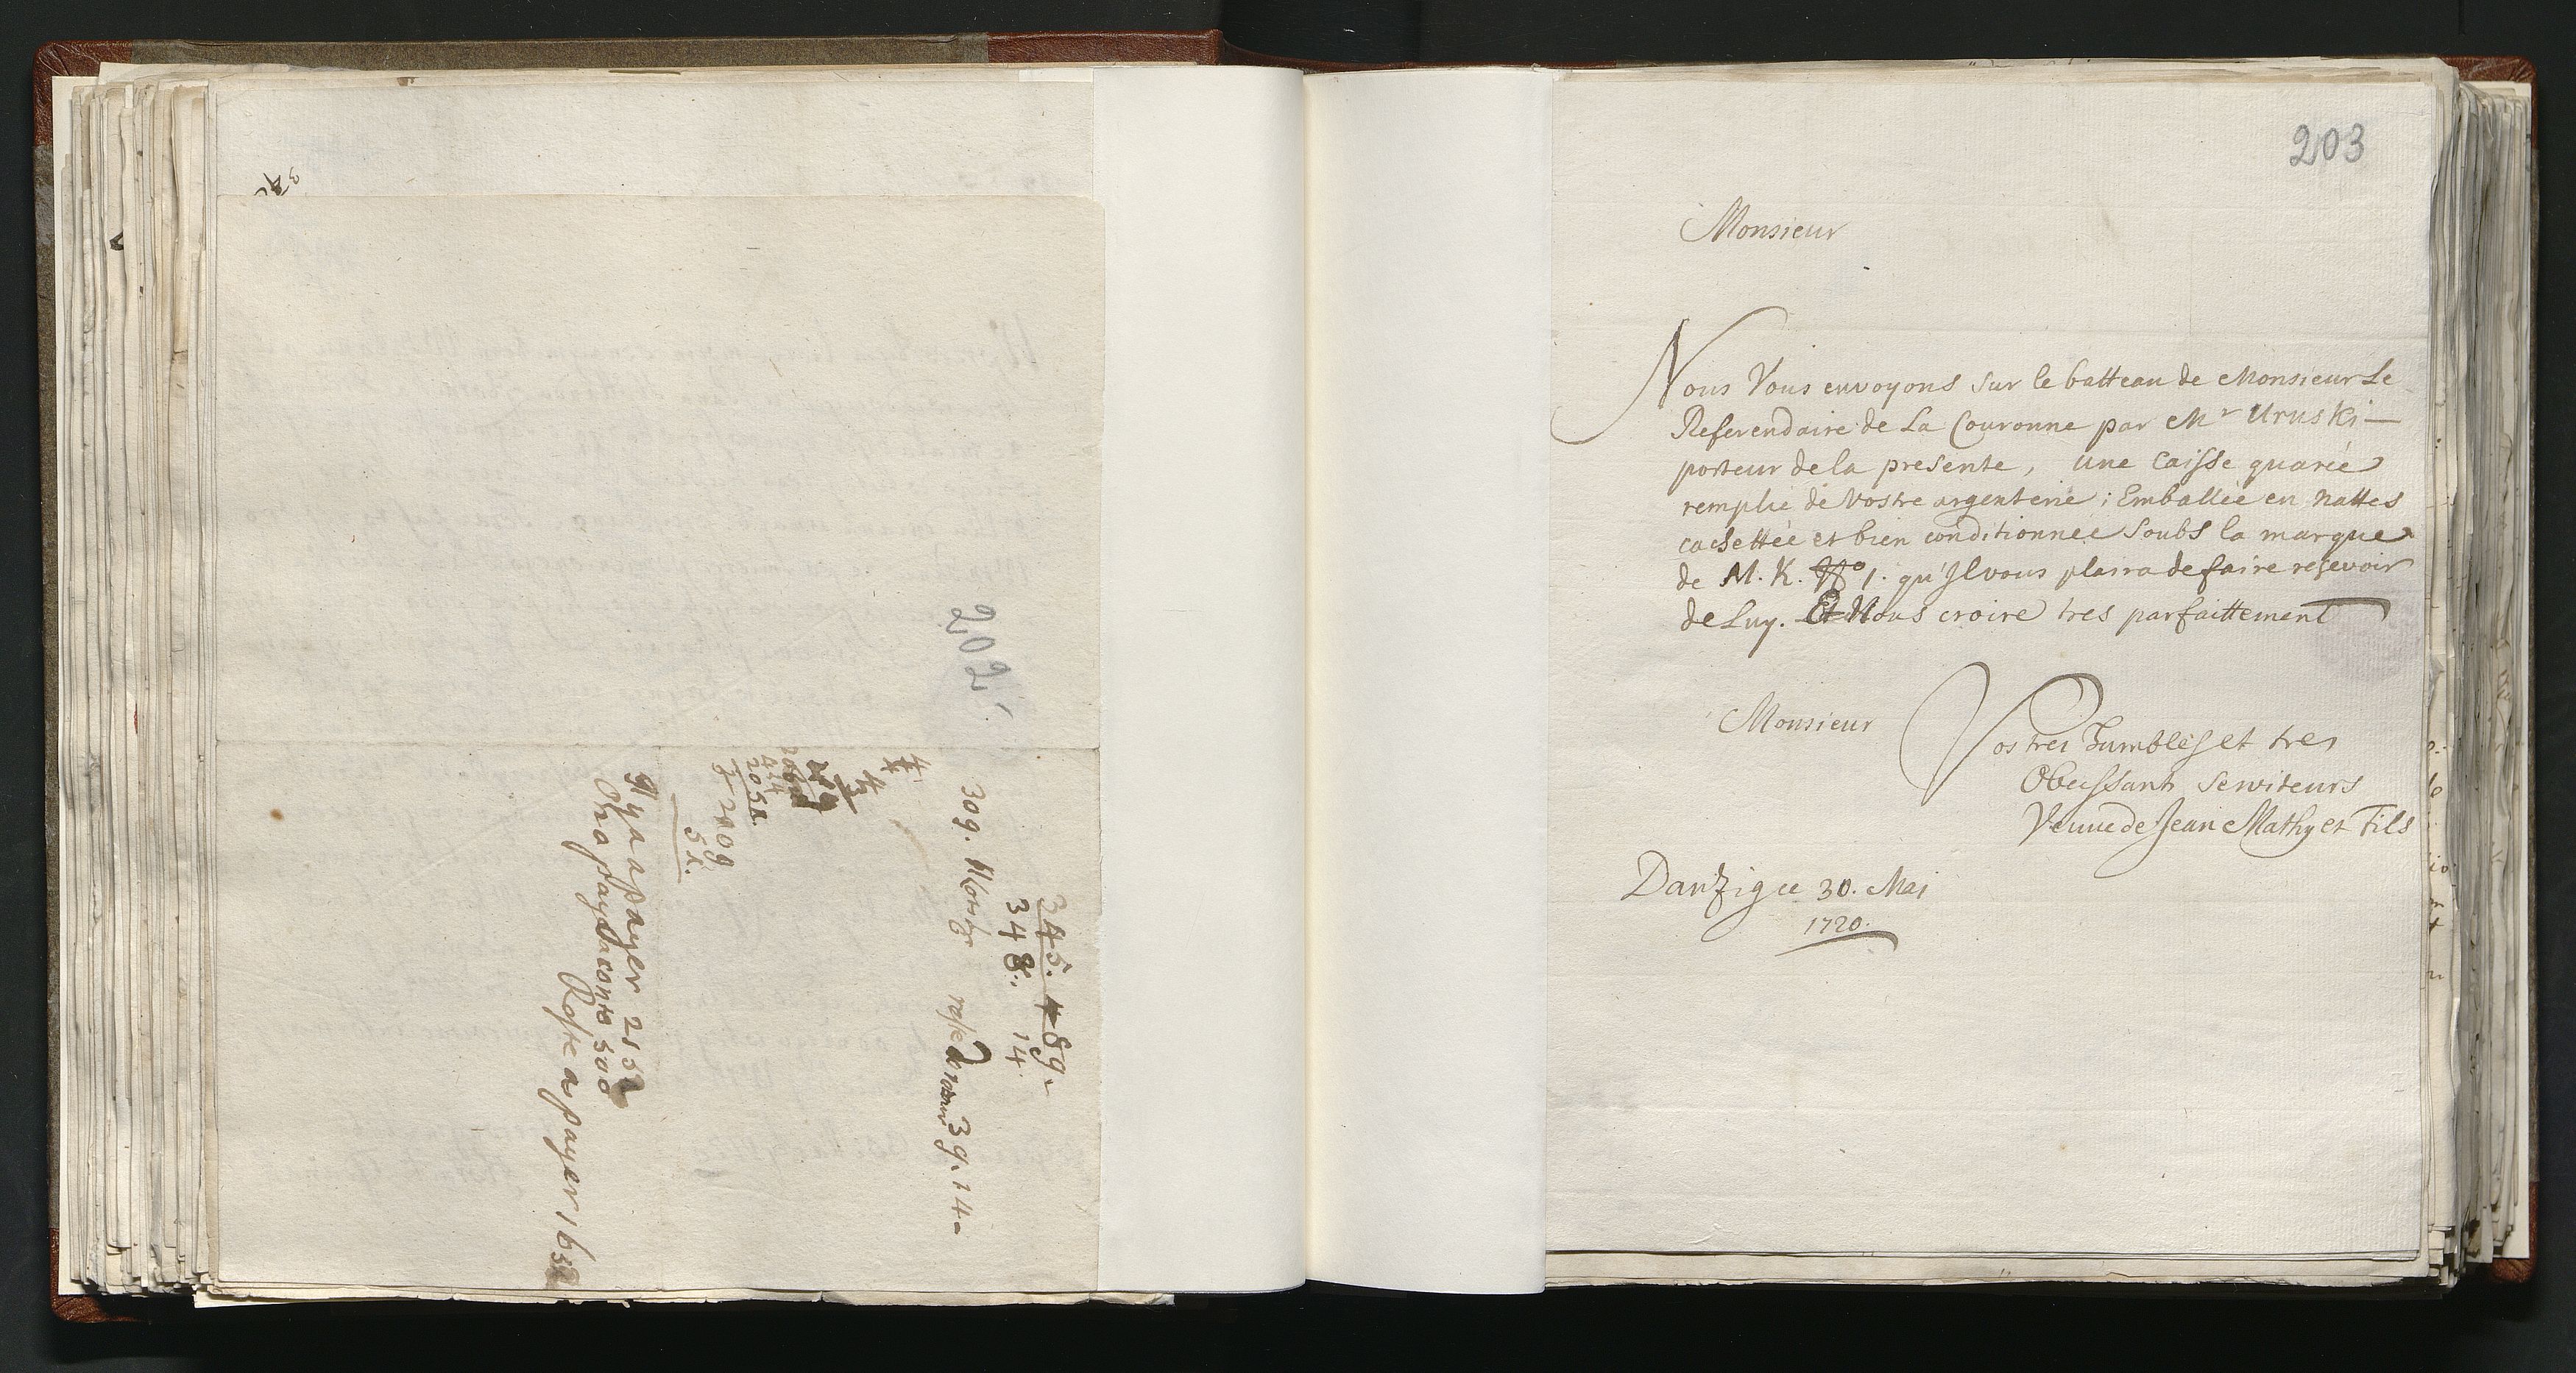 202
345. 489.
348. 14.
309. reste 39. 14
4
4
2052
2209
52.
Il y a a payer 2152
On a paye a conte 500
Reste a payer 1652
203
Monsieur
Nous Vous envoyons sur le batteau de Monsieur Le
Referendaire de La Couronne par Mr Uruski —
porteur de la presente, une Caisse quarée
remplie de Vostre argenterie; Emballée en nattes
cachettée et bien conditionnée soubs la marque
de M. K. No 1. qu'Il vous plaira de faire resevoir
de Luy. Et Nous croire tres parfaittement
Monsieur
Vos tres humbles et tres
Obeissants serviteurs
Veuve de Jean Mathy et Fils
Danzig ce 30. Mai
1720.